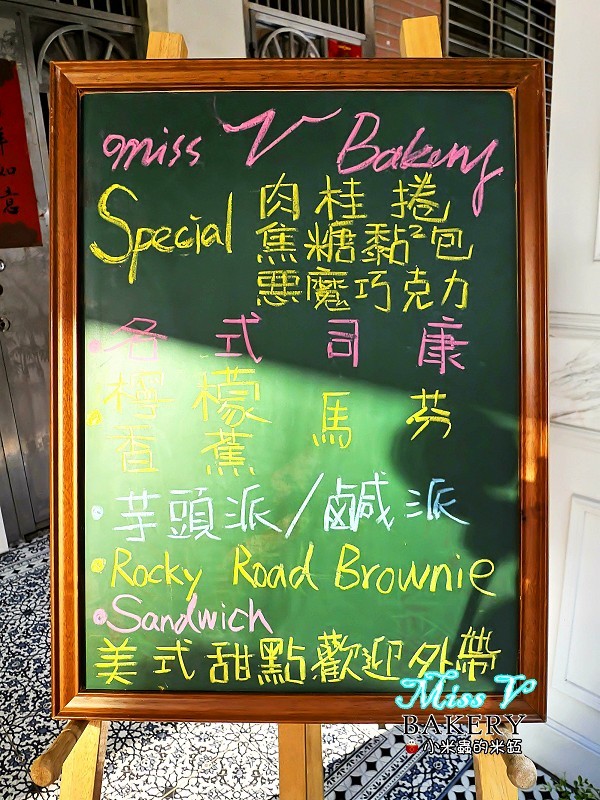 miss V Bakery
Special 肉桂捲
焦糖黏²包
惡魔巧克力
各式司康
檸檬
香蕉 馬芬
芋頭派/鹹派
Rocky Road Brownie
Sandwich
美式甜點歡迎外帶
如意
Miss V
BAKERY
小米蟲的米缸